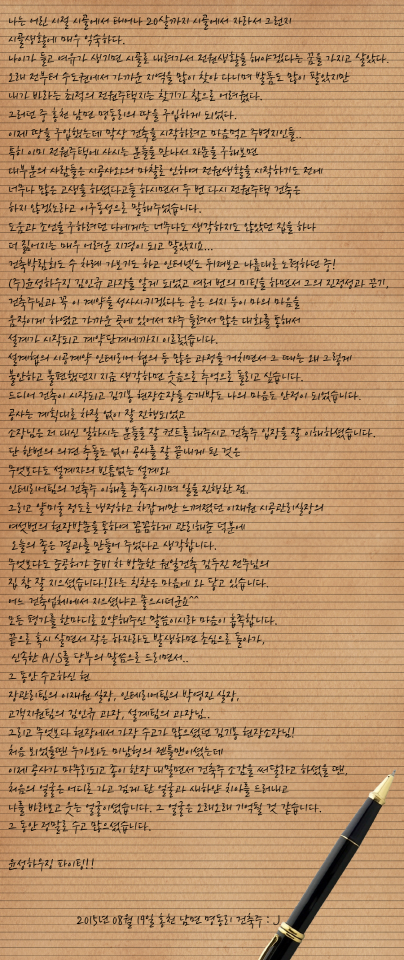 나는 어린 시절 시골에서 태어나 20살까지 시골에서 자라서 그런지
시골생활에 매우 익숙하다.
나이가 들고 여유가 생기면 시골로 내려가서 전원생활을 해야겠다는 꿈을 가지고 살았다.
오래 전부터 수도권에서 가까운 지역을 많이 찾아 다니며 발품도 많이 팔았지만
내가 바라는 최적의 전원주택지는 찾기가 참으로 어려웠다.
그러던 중 홍천 남면 명동리의 땅을 구입하게 되었다.
이제 땅을 구입했는데 막상 건축을 시작하려고 마음먹고 주변지인들..
특히 이미 전원주택에 사시는 분들을 만나서 자문을 구해보면
대부분의 사람들은 시공사와의 마찰로 인하여 전원생활을 시작하기도 전에
너무나 많은 고생을 하셨다고들 하시면서 두 번 다시 전원주택 건축은
하지 않겠노라고 이구동성으로 말해주었습니다.
도움과 조언을 구하려던 나에게는 너무나도 생각하지도 않았던 짐을 하나
더 짊어지는 매우 어려운 지경이 되고 말았지요...
건축박람회도 수 차례 가보기도 하고 인터넷도 뒤져보고 나름대로 노력하던 중!
(주)윤성하우징 김인규 과장을 알게 되었고 여러 번의 미팅을 하면서 그의 진정성과 끈기,
건축주님과 꼭 이 계약을 성사시키겠다는 굳은 의지 등이 나의 마음을
움직이게 하였고 가까운 곳에 있어서 자주 들려서 많은 대화를 통해서
설계가 시작되고 계약단계에까지 이르렀습니다.
설계협의 시공계약 인테리어 협의 등 많은 과정을 거치면서 그 때는 왜 그렇게
불안하고 불편했던지 지금 생각하면 웃음으로 추억으로 돌리고 싶습니다.
드디어 건축이 시작되고 김기봉 현장소장을 소개받고 나의 마음도 안정이 되었습니다.
공사는 계획대로 차질 없이 잘 진행되었고
소장님은 저 대신 일하시는 분들을 잘 컨트롤 해주시고 건축주 입장을 잘 이해하셨습니다.
단 한번의 의견 충돌도 없이 공사를 잘 끝내게 된 것은
무엇보다도 설계자의 빈틈없는 설계와
인테리어팀의 건축주 이해를 충족시키며 일을 진행한 점.
그리고 얄미울 정도로 냉정하고 차갑게만 느껴졌던 이재원 시공관리실장의
여섯번의 현장방문을 통하여 꼼꼼하게 관리해준 덕분에
오늘의 좋은 결과를 만들어 주었다고 생각합니다.
무엇보다도 준공허가 준비 차 방문한 원일건축 김두진 전무님의
집 참 잘 지으셨습니다!라는 칭찬은 마음에 와 닿고 있습니다.
어느 건축업체에서 지으셨냐고 물으시더군요^^
모든 평가를 한마디로 요약해주신 말씀이시라 마음이 흡족합니다.
끝으로 혹시 살면서 작은 하자라도 발생하면 초심으로 돌아가,
신속한 A/S를 당부의 말씀으로 드리면서..
그 동안 수고하신 현
장관리팀의 이재원 실장, 인테리어팀의 박영진 실장,
고객지원팀의 김인규 과장, 설계팀의 과장님..
그리고 무엇보다 현장에서 가장 수고가 많으셨던 김기봉 현장소장님!
처음 뵈었을땐 누가봐도 미남형의 젠틀맨이셨는데
이제 공사가 마무리되고 종이 한장 내밀면서 건축주 소감을 써달라고 하셨을 땐,
처음의 얼굴은 어디로 가고 검게 탄 얼굴과 새하얀 치아를 드러내고
나를 바라보고 웃는 얼굴이셨습니다. 그 얼굴은 오래오래 기억될 것 같습니다.
그 동안 정말로 수고 많으셨습니다.
윤성하우징 파이팅!!
2015년 08월 19일 홍천 남면 명동리 건축주 : J